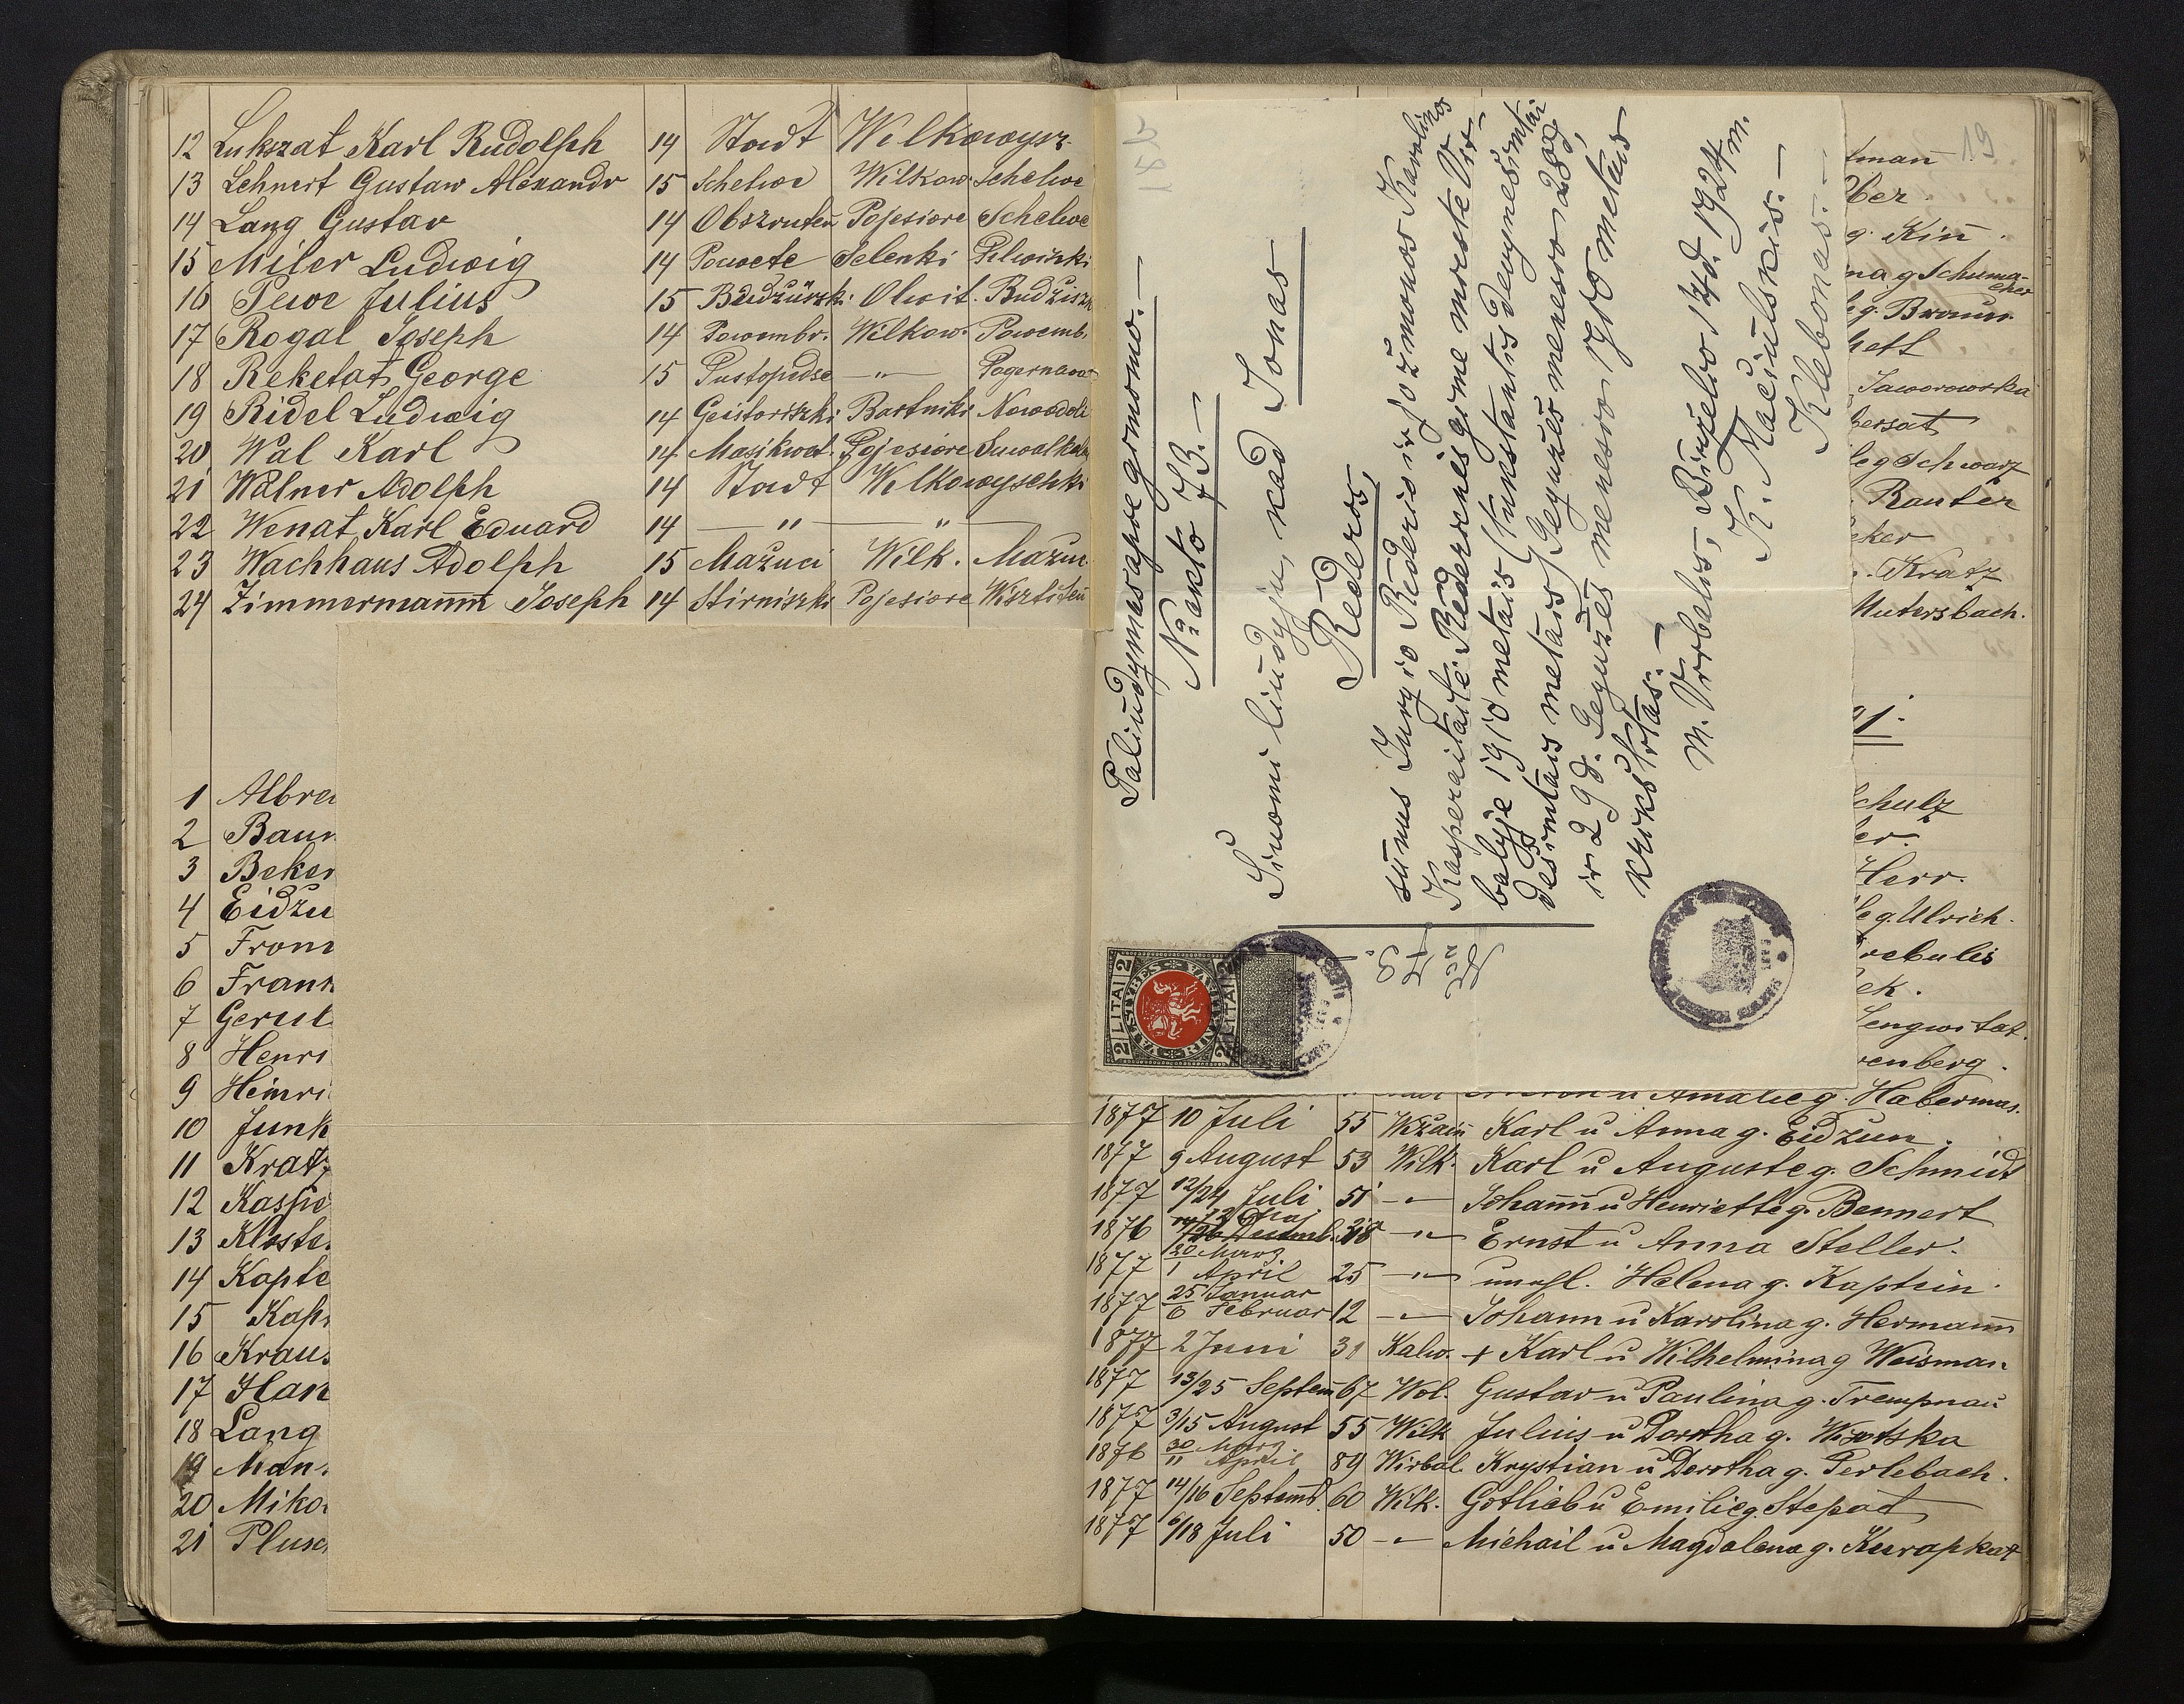 12 Lukszat Karl Rudolph 14 Stadt Wilkowysz.
13 Lehnert Gustaw Alexandr 15 Schelwe Wilkow. Schelwe
14 Lang Gustav 14 Obszruten Pojesiore Schelwe
15 Miler Ludwig 14 Powete Selenki Pilwiszki
16 Pewe Julius 15 Budzuiszk. Olwit. Budzisz
17 Rogal Joseph 14 Powembr. Wilkow. Powemb.
18 Reketat George 15 Pustopedse —"— Pogernaw
19 Ridel Ludwig 14 Geistoriszki Bartniki Nowodoli
20 Wal Karl 14 Masikwot. Pojesiore Suwalkal
21 Walner Adolph 14 Stadt Wilkowyschki
22 Wenat Karl Eduard 14 —"— —"—
23 Wachhaus Adolph 15 Mazuci Wilk. Mazu
24 Zimmermann Joseph 14 Stirniszki Pojesiore Wisztiten
1 Albre
2 Baum
3 Beker
4 Eidzu
5 From
6 Frank
7 Gerul
8 Henri
9 Heinri
10 Junk
11 Kratz
12 Kaspe
13 Kloste
14 Kapte
15 Kap
16 Kraus
17 Han
18 Lang
19 Man
20 Miko
21 Plusc
Paliudymas apie gimimo.—
№ akto 73.—
Šiuomi liudyju, kad Jonas
Rēderis,
sūnus Jurgio Rēderio ir jo žmonos Karolinos
Kasperaitaitē-Rēderienēs gimē mieste Vir-
balyje 1910 metais (tūkstantis devynešimtai
dešimtais metais) Gegužēs mēnesio 28 d.,
ir 29 d. Gegužēs mēnesio 1910 metais
krikštytas.—
m. Virbalis, Birželio 17 d. 1924 m.
K. Mačiulskis.—
Klebonas.—
2 LITAI 2
2 LITAI 2
19
tman
ber.
g. Kin.
na g Schuma-
cher
g. Braun
hett
Jaworowska
bersat
leg Schwarz
Rauter
eker
. Kratz
Mutersbach.
chulz
er.
Herr.
le g. Ulrich.
rebulis
ek.
Lengwitat.
renberg.
Amalie g. Habermas.
1877 10 Juli 55 Wizain Karl u Anna g. Eidzun.
1877 9 August 53 Wilk. Karl u Auguste g. Schmidt
1877 12/24 Juli 51 —"— Johann u Henriette g. Bennert
1876 28 —"— Ernst u Anna Steller.
1877 20 Marz/1 April 25 —"— unehl. Helena g. Kaptein.
1877 25 Januar/6 Februar 12 —"— Johann u Karolina g. Hermann
1877 2 Juni 31 Kalw. + Karl u Wilhelmina g Weisman
1877 13/25 Septem 67 Wol. Gustav u Paulina g. Trempnau
1877 3/15 August 55 Wilk Julius u Dorotha g. Wisotska
1876 30 Marz/11 April 89 Wirbal. Krystian u Dorotha g. Perlebach.
1877 14/16 Septemb. 60 Wilk. Gotlieb u Emilie g. Stepat
1877 6/18 Juli 50 —"— Michail u Magdalena g. Kurapkat